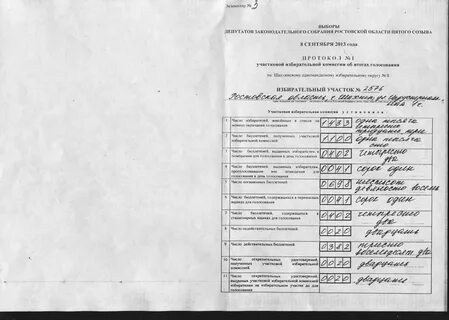 Экземпляр № 3
ВЫБОРЫ
ДЕПУТАТОВ ЗАКОНОДАТЕЛЬНОГО СОБРАНИЯ РОСТОВСКОЙ ОБЛАСТИ ПЯТОГО СОЗЫВА
8 СЕНТЯБРЯ 2013 года
ПРОТОКОЛ № 1
участковой избирательной комиссии об итогах голосования
по Шахтинскому одномандатному избирательному округу №
ИЗБИРАТЕЛЬНЫЙ УЧАСТОК №
Ростовская область, г. Шахты, ул.
Участковая избирательная комиссия установила
1 Число избирателей, внесённых в список на момент окончания голосования 1483 одна тысяча четыреста восемьдесят три
2 Число бюллетеней, полученных участковой избирательной комиссией 1100 одна тысяча сто
3 Число бюллетеней, выданных избирателям в помещении для голосования в день голосования 0402 четыреста два
4 Число бюллетеней, выданных избирателям, проголосовавшим вне помещения для голосования в день голосования 0041 сорок один
5 Число погашенных бюллетеней девяносто восемь
6 Число бюллетеней, содержащихся в переносных ящиках для голосования 0041 сорок один
7 Число бюллетеней, содержащихся в стационарных ящиках для голосования 0402 четыреста два
8 Число недействительных бюллетеней 0020 двадцать
9 Число действительных бюллетеней 0382 триста восемьдесят два
10 Число открепительных удостоверений, полученных участковой избирательной комиссией 0020 двадцать
11 Число открепительных удостоверений, выданных участковой избирательной комиссией избирателям на избирательном участке до дня голосования 0020 двадцать